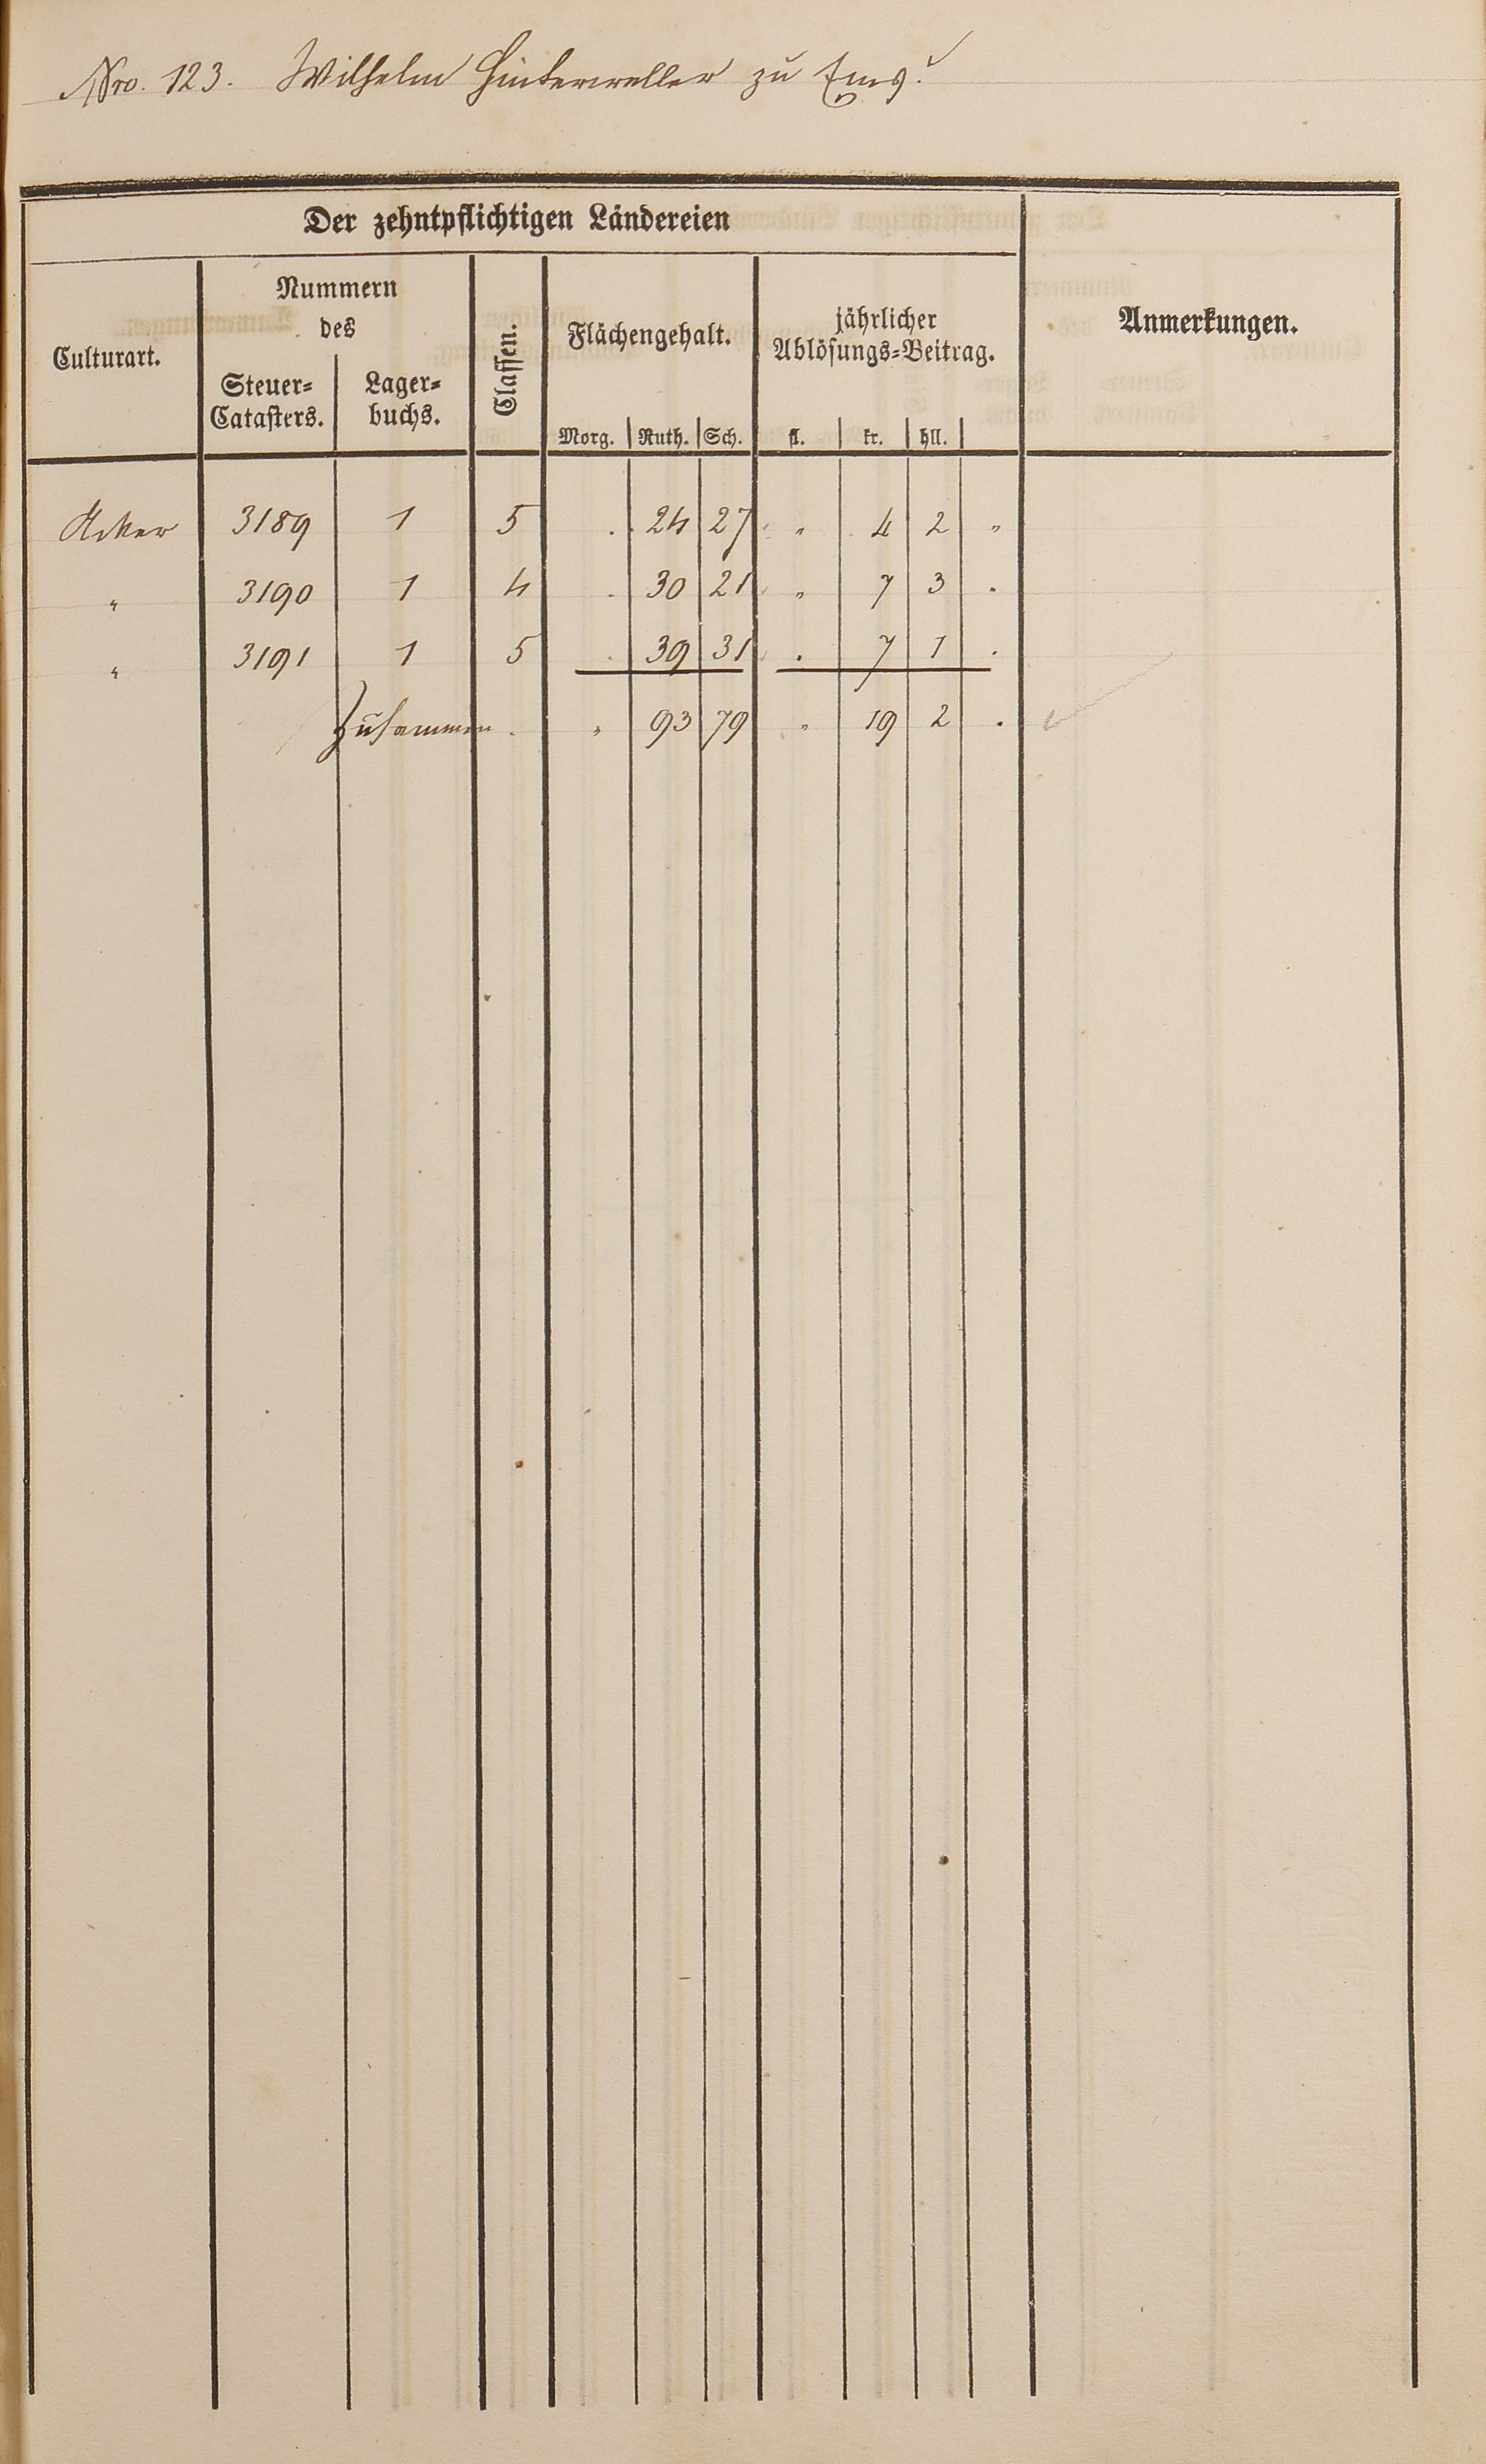 Nro. 123. Wilhelm Hinterweller zu Ems.
Der zehntpflichtigen Ländereien
Culturart.
Nummern
des
Steuer=
Catasters.
Lager=
buchs.
Classen.
Flächengehalt.
Morg. Ruth. Sch.
jährlicher
Ablösungs=Beitrag.
fl. kr. hll.
Anmerkungen.
Acker 3189 1 5 . 24 27 „ 4 2 „
„ 3190 1 4 . 30 21 „ 7 3 .
„ 3191 1 5 . 39 31 . 7 1 .
Zusammen . „ 93 79 „ 19 2 .